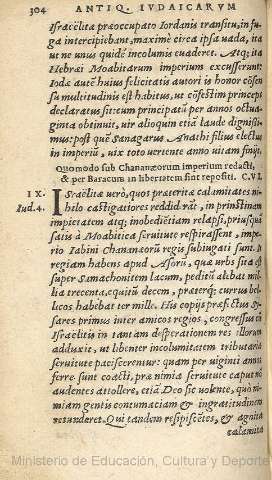 304 ANTIQ. IVDAICARVM
Israëlitæ præoccupato Iordanis transitu, in fu,
ga intercipiebant, maximè circa ipsa uada, ita
ut ne unus quidē incolumis euaderet. Atq; ita
Hebræi Moabitarum imperium excusserunt:
Iodæ autē huius felicitatis autori is honor cōsen
su multitudinis est habitus, ut cōfestim princeps
declaratus sit: eum principatū per annos octua,
ginta obtinuit, uir alioquin etiā laude dignissi,
mus: post quē Sanagarus Anathi filius electus
in imperiū, uix toto uertente anno uitam finijt.
Quomodo sub Chananæorum imperium redacti,
& per Baracum in libertatem sint repositi. C.VI.
IX.
Iud.4.
Israëlitæ uerò, quos præteritæ calamitates ni-
hilo castigatiores reddiderāt, in pristinam
impietatem atq; inobediētiam relapsi, priusquā
satis à Moabitica seruitute respirassent, impe,
rio Iabini Chananæorū regis subiugati sunt. Is
regiam habens apud Asorū, quæ urbs sita est
super Samachonitem lacum, peditū alebat mil
lia trecenta, equitū decem, præterq; currus bel
licos habebat ter mille. His copijs præfectus Si,
sares primus inter amicos regios, congressus cū
Israëlitis in tantam desperationem res illorum
adduxit, ut libenter incolumitatem tributaria
seruitute paciscerentur: quam per uiginti annos
ferre sunt coacti, præ nimia seruitute caput nō
audentes attollere, etiā Deo sic uolente, quo ni-
miam gentis contumaciam & ingratitudinem
retunderet. Qui tandem resipiscētes, & agnita
calamita
Ministerio de Educación, Cultura y Deporte